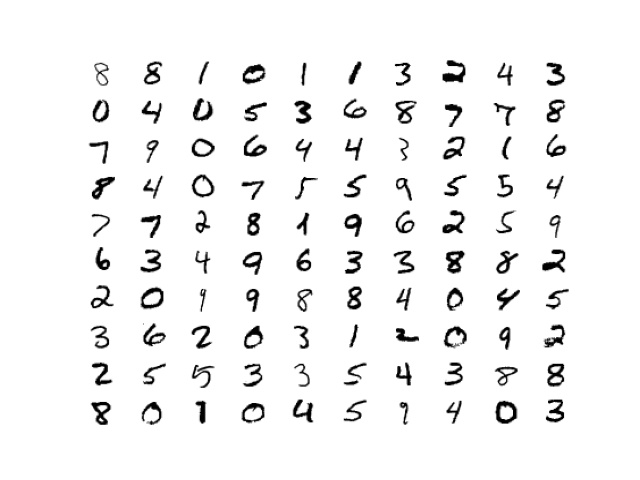 8 8 1 0 1 1 3 2 4 3
0 4 0 5 3 6 8 7 7 8
7 9 0 6 4 4 3 2 1 6
8 4 0 7 5 5 9 5 5 4
7 7 2 8 1 9 6 2 5 9
6 3 4 9 6 3 3 8 8 2
2 0 9 9 8 8 4 0 4 5
3 6 2 0 3 1 2 0 9 2
2 5 5 3 3 5 4 3 8 8
8 0 1 0 4 5 9 4 0 3